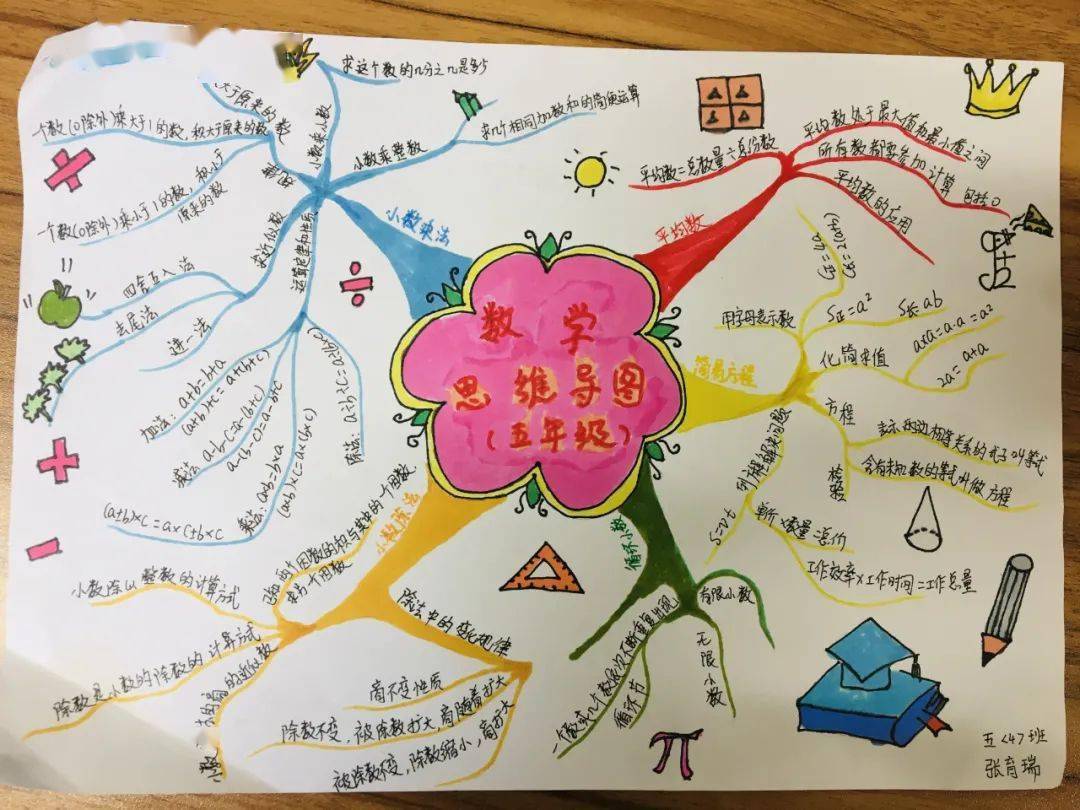 数学
思维导图
(五年级)
小数乘法
小数乘小数
求这个数的几分之几是多少
小数乘整数
求几个相同加数和的简便运算
规律
大于原来的数
一个数(0除外)乘大于1的数,积大于原来的数
一个数(0除外)乘小于1的数,积小于
原来的数
求近似数
四舍五入法
去尾法
进一法
运算定律和性质
加法:a+b=b+a
(a+b)+c=a+(b+c)
减法:a-b-c=a-(b+c)
a-(b-c)=a-b+c
乘法:a×b=b×a
(a×b)×c=a×(b×c)
(a+b)×c=a×c+b×c
除法:a÷b÷c=a÷(b×c)
平均数
平均数=总数量÷总份数
平均数处于最大值和最小值之间
所有数都要参加计算 包括0
平均数的应用
简易方程
用字母表示数
S正=a²
S长=ab
化简求值
a×a=a·a=a²
2a=a+a
方程
表示两边相等关系的式子叫等式
含有未知数的等式叫做方程
检验
列方程解决问题
S=vt
单价×数量=总价
工作效率×工作时间=工作总量
循环小数
有限小数
无限小数
循环节
一个数字或几个数依次不断重复出现
小数除法
已知两个因数的积与其中的一个因数,
求另一个因数
小数除以整数的计算方式
除数是小数的除数的计算方式
除法中的变化规律
商不变性质
除数不变,被除数扩大,商随着扩大
被除数不变,除数缩小,商扩大
π
五<4>班
张育瑞